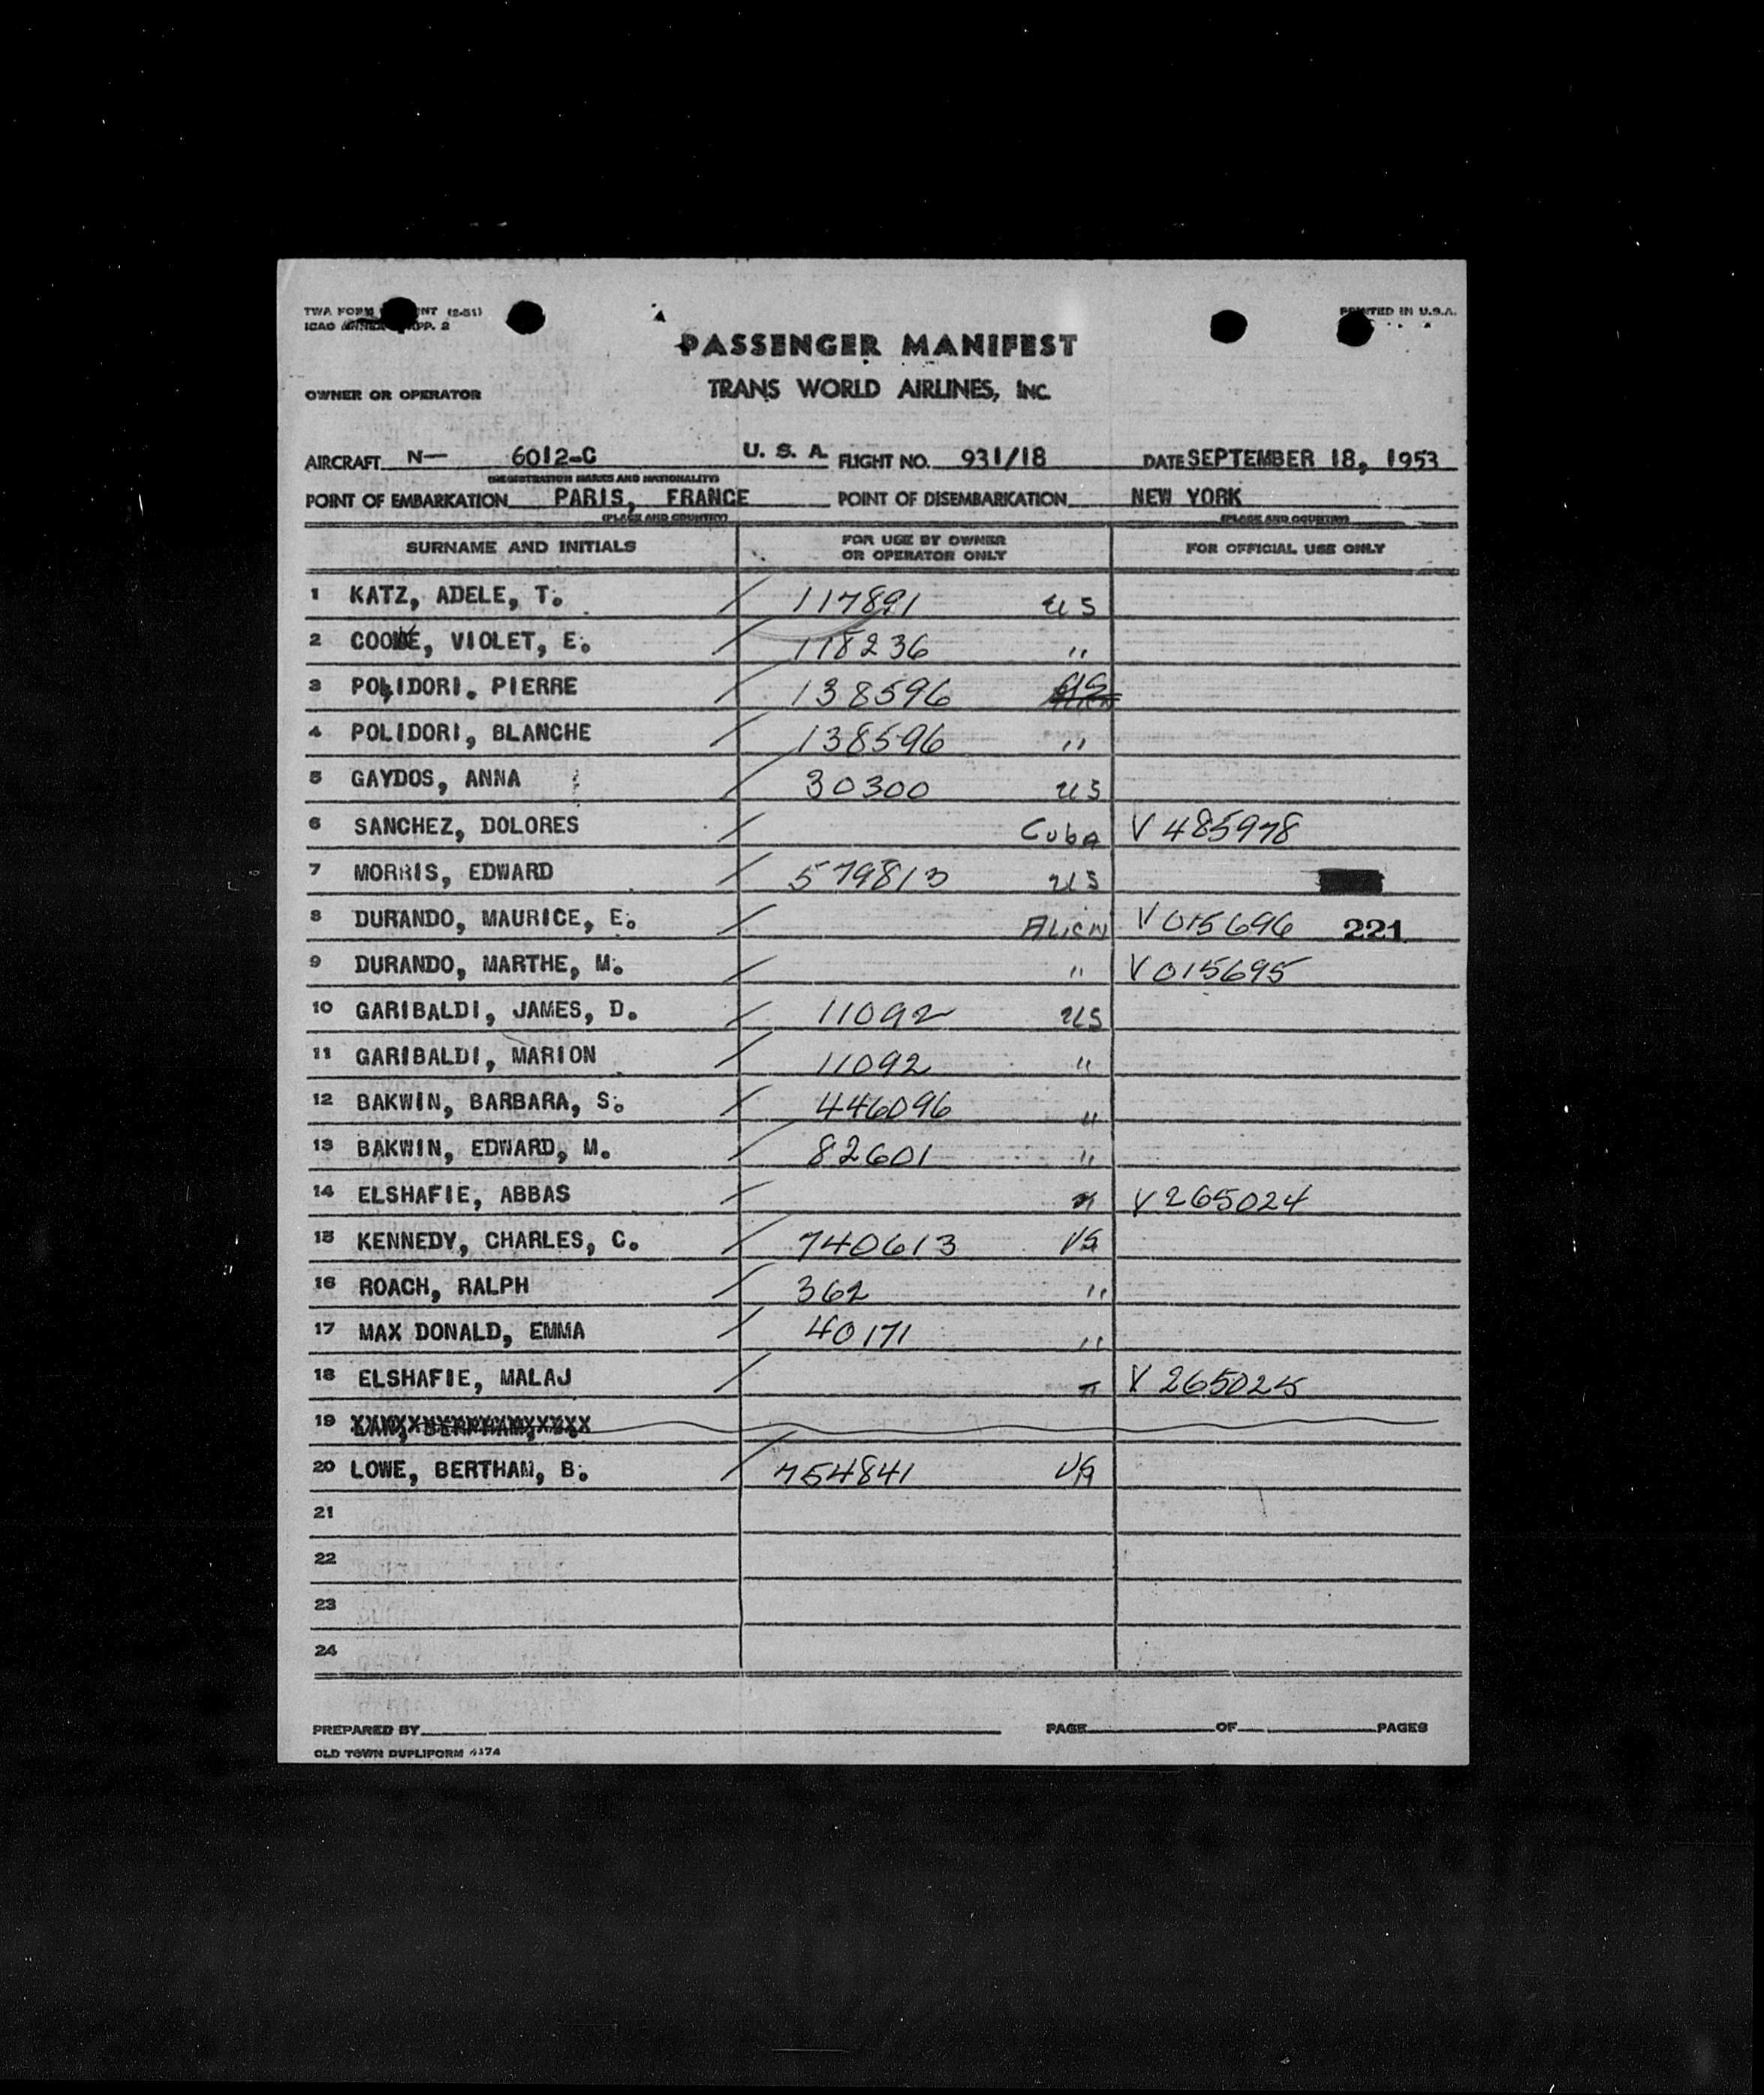 TWA FORM NT (2-51)
ICAO ANNEX PP. 2
PRINTED IN U.S.A.
PASSENGER MANIFEST
OWNER OR OPERATOR TRANS WORLD AIRLINES, INC.
AIRCRAFT N— 6012-C U. S. A. FLIGHT NO. 931/18 DATE SEPTEMBER 18, 1953
(REGISTRATION MARKS AND NATIONALITY)
POINT OF EMBARKATION PARIS, FRANCE POINT OF DISEMBARKATION NEW YORK
(PLACE AND COUNTRY) (PLACE AND COUNTRY)
SURNAME AND INITIALS FOR USE BY OWNER OR OPERATOR ONLY FOR OFFICIAL USE ONLY
1 KATZ, ADELE, T. / 117891 US
2 COOKE, VIOLET, E. / 118236 "
3 POLIDORI. PIERRE / 138596 US
4 POLIDORI, BLANCHE / 138596 "
5 GAYDOS, ANNA / 30300 US
6 SANCHEZ, DOLORES / Cuba V 485978
7 MORRIS, EDWARD / 579813 US
8 DURANDO, MAURICE, E. / Alien V 015696 221
9 DURANDO, MARTHE, M. / " V 015695
10 GARIBALDI, JAMES, D. / 11092 US
11 GARIBALDI, MARION / 11092 "
12 BAKWIN, BARBARA, S. / 446096 "
13 BAKWIN, EDWARD, M. / 82601 "
14 ELSHAFIE, ABBAS / V 265024
15 KENNEDY, CHARLES, C. / 740613 US
16 ROACH, RALPH / 362 "
17 MAX DONALD, EMMA / 40171 "
18 ELSHAFIE, MALAJ / V 265025
19
20 LOWE, BERTHAM, B. / 754841 US
21
22
23
24
PREPARED BY PAGE OF PAGES
OLD TOWN DUPLIFORM 4174